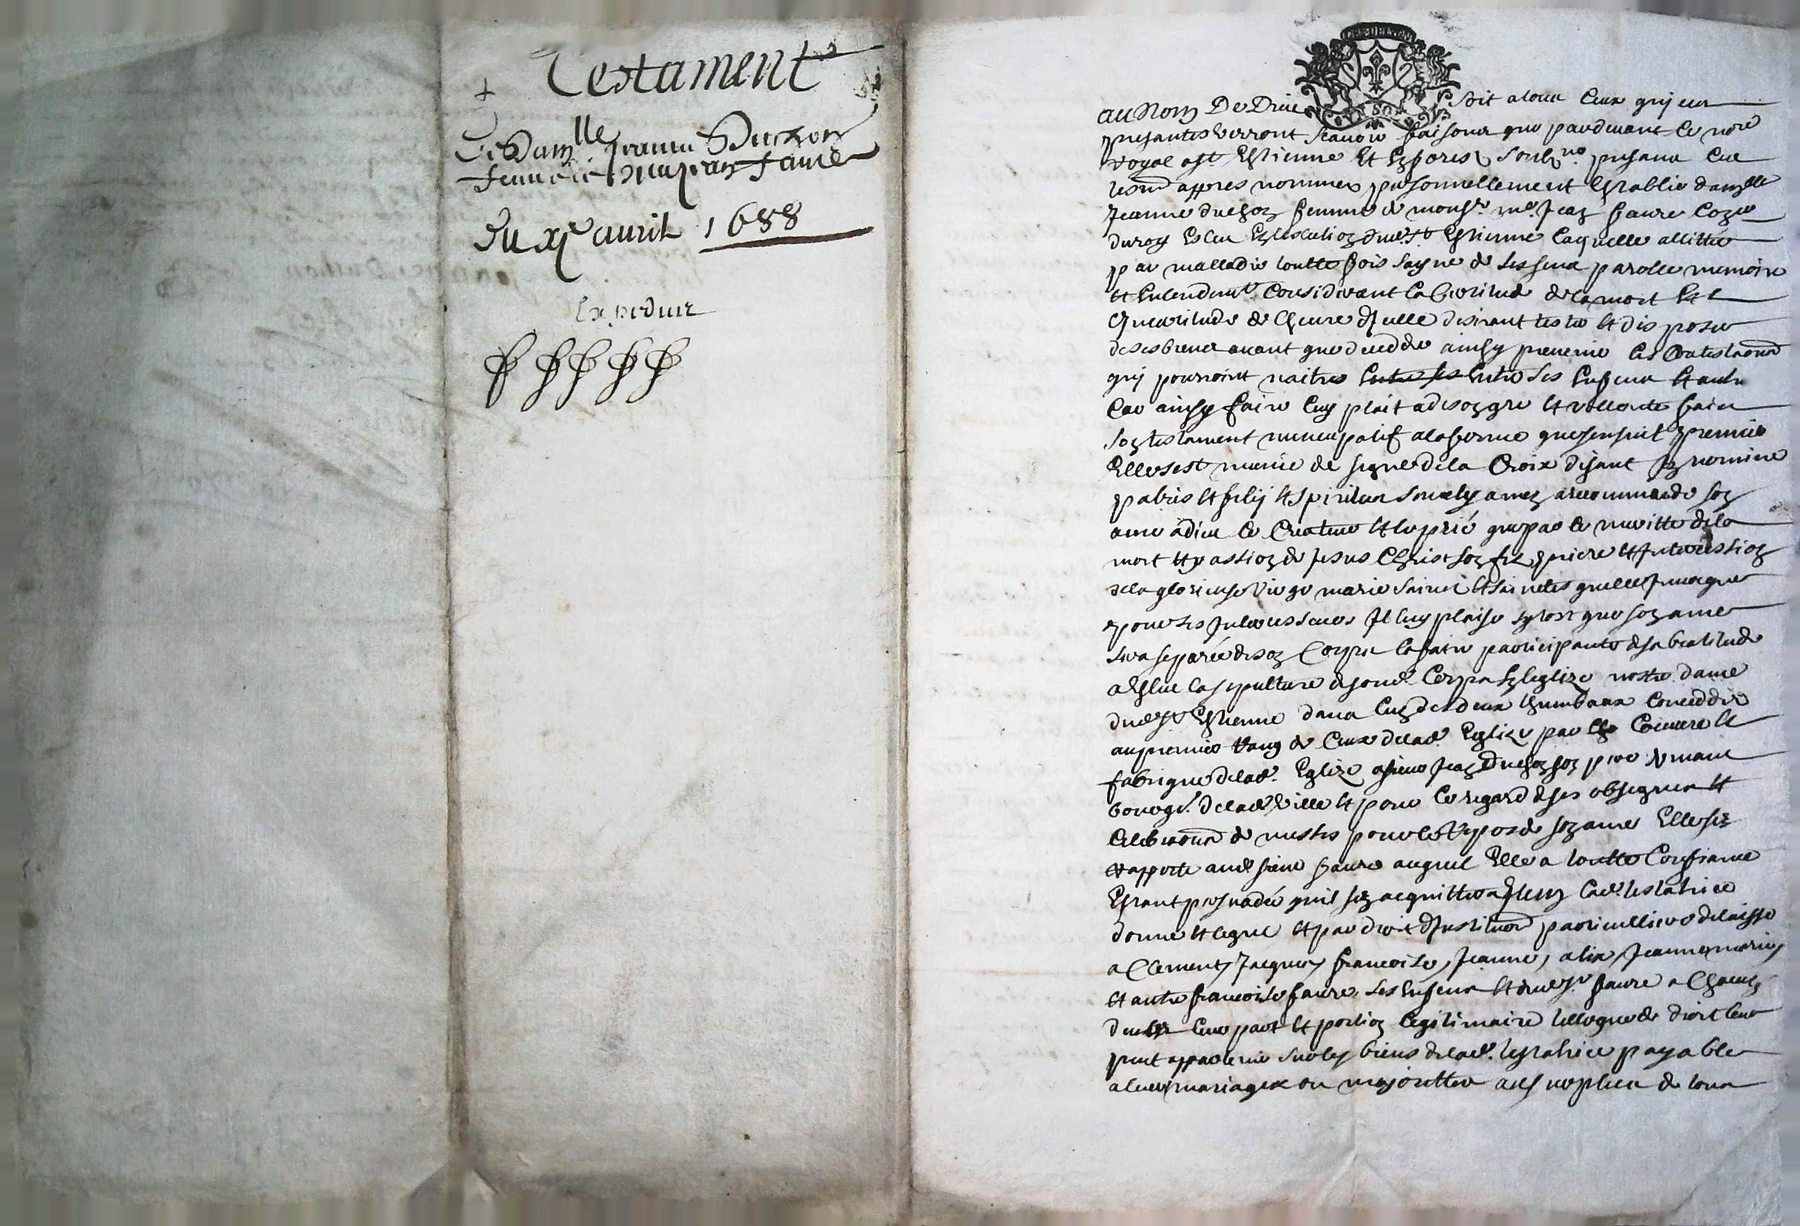 Testament
de Dam.lle Jeanne Duchon
femme de m.e Jean Faure
du xj.e avril 1688
Expedier
au Nom De Dieu Soit a tous Ceux quj ces
presantes verront scauoir faisons que pardeuant le no.re
royal a st Estienne Et En forest soub.né presans les
tesm. appres nommes personnellement Establie dam.lle
Jeanne duchon femme de mons.r m.e Jean faure Con.er
du roy Esleu En leslection dud. st Estienne laquelle allittee
par malladie toutte fois sayne de ses sens parolle memoire
Et Entendem.t Considerant la Certitude de la mort Et l
Incertitude de lheure dJcelle desirant tester Et disposer
de ses biens auant que deceder ainsy preuenir les Contestaons
quj pourroint naitre Entre ses Enfens Et autre
Car ainsy faire luy plait a de son gre Et vollonte faict
son testament nuncupatif a la forme que sensuit premier
Elle sest munie du signe de la Croix disant In nomine
patris Et filij Et spiritus sancty amen a recommande son
ame a dieu le Createur Et la prié que par le meritte de la
mort Et passion de Jesus Christ son fils priere Et Intercession
de la glorieuse Vierge marie saincts Et sainctes quelle Jnuoque
pour ses Intercesseurs Il luy plaise lors que son ame
sera separée de son Corps la faire participante de sa beatitude
a Esleu la sepulture de sond. Corps En leglize nostre dame
dud. st Estienne dans lun des deux tumbeaux Conceddes
au premier rang de Ceux de lad. Eglize par les Cure Et
fabrique de lad. Eglize a sieur Jean Duchon son pere viuant
bourg.s de lad. ville Et pour le regard de ses obseques Et
Celebraons de messes pour le repos de son ame Elle sen
rapporte aud. sieur faure auquel Elle a toutte Confiance
Estant persuadée quil sen acquittera bien lad. testatrice
donne Et legue Et par droit dInstituon particulliere delaisse
a Clement, Jacques, francoise, Jeanne, alix, Jeanne marie,
Et autre francoise faure ses Enfens Et dud. s.r faure a Chacun
deux leur part Et portion legitimaire telle que de droit leur
peut appartenir sur les biens de lad. testatrice payable
a leurs mariages ou majoritte de tous